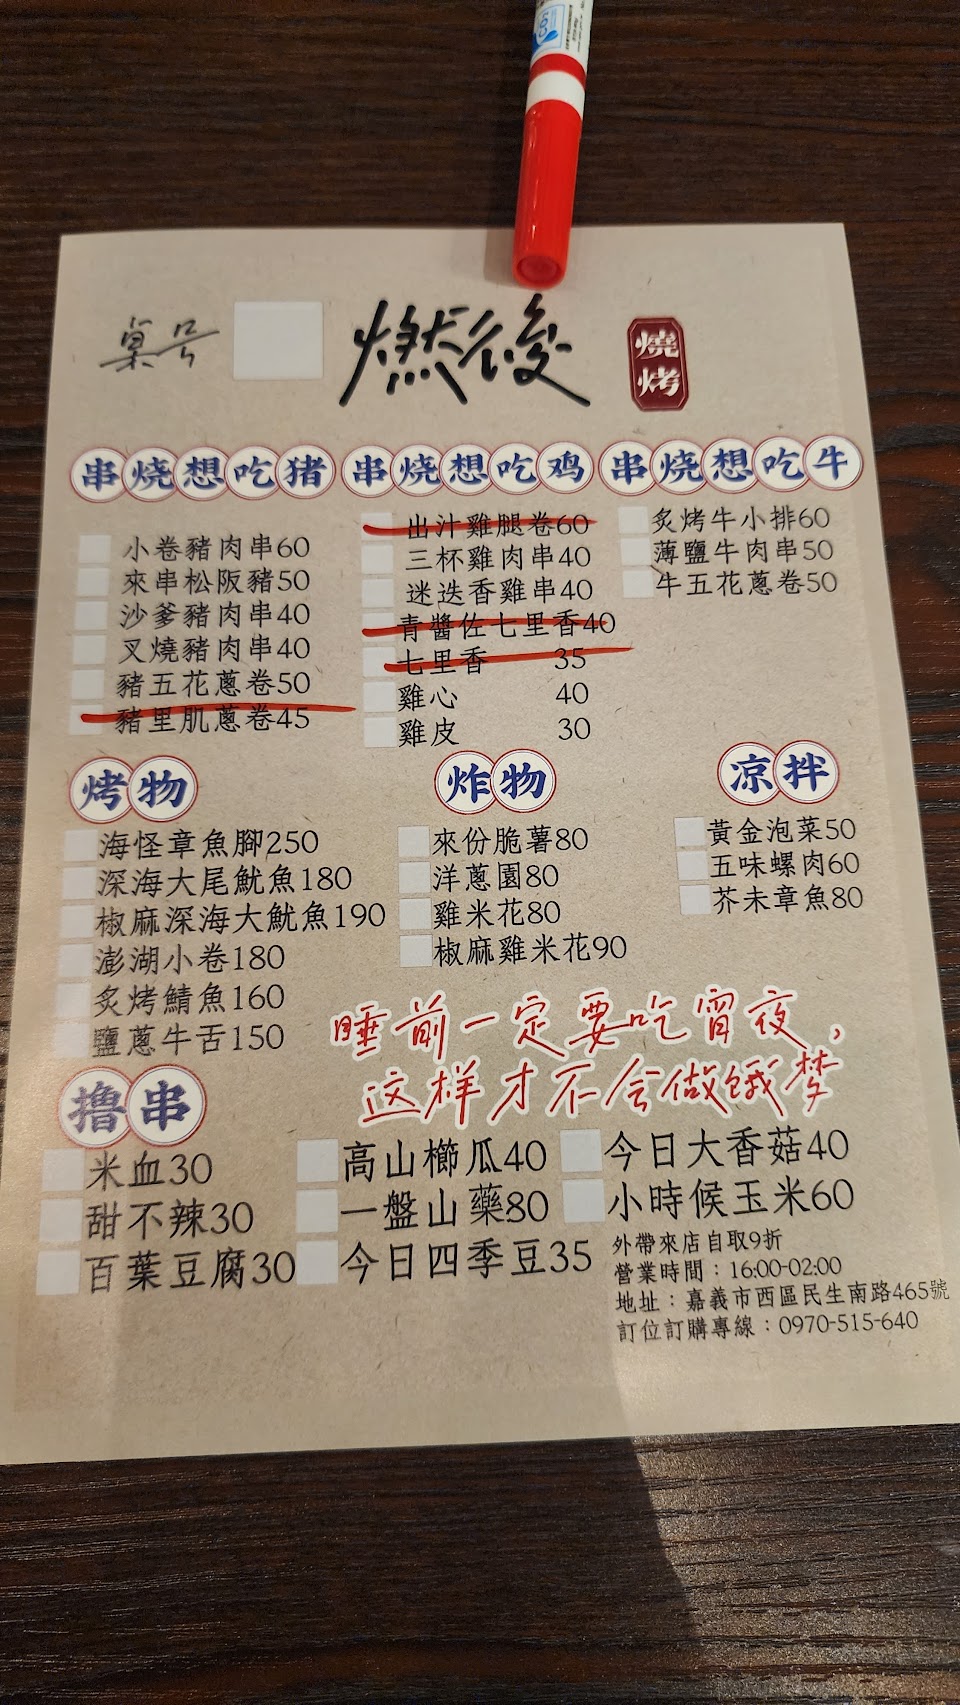 桌号
燃後
燒烤
串烧想吃猪
小卷豬肉串60
來串松阪豬50
沙爹豬肉串40
叉燒豬肉串40
豬五花蔥卷50
豬里肌蔥卷45
串烧想吃鸡
出汁雞腿卷60
三杯雞肉串40
迷迭香雞串40
青醬佐七里香40
七里香 35
雞心 40
雞皮 30
串烧想吃牛
炙烤牛小排60
薄鹽牛肉串50
牛五花蔥卷50
烤物
海怪章魚腳250
深海大尾魷魚180
椒麻深海大魷魚190
澎湖小卷180
炙烤鯖魚160
鹽蔥牛舌150
炸物
來份脆薯80
洋蔥園80
雞米花80
椒麻雞米花90
凉拌
黃金泡菜50
五味螺肉60
芥未章魚80
睡前一定要吃宵夜，
这样才不会做饿梦
撸串
米血30
甜不辣30
百葉豆腐30
高山櫛瓜40
一盤山藥80
今日四季豆35
今日大香菇40
小時候玉米60
外帶來店自取9折
營業時間：16:00-02:00
地址：嘉義市西區民生南路465號
訂位訂購專線：0970-515-640